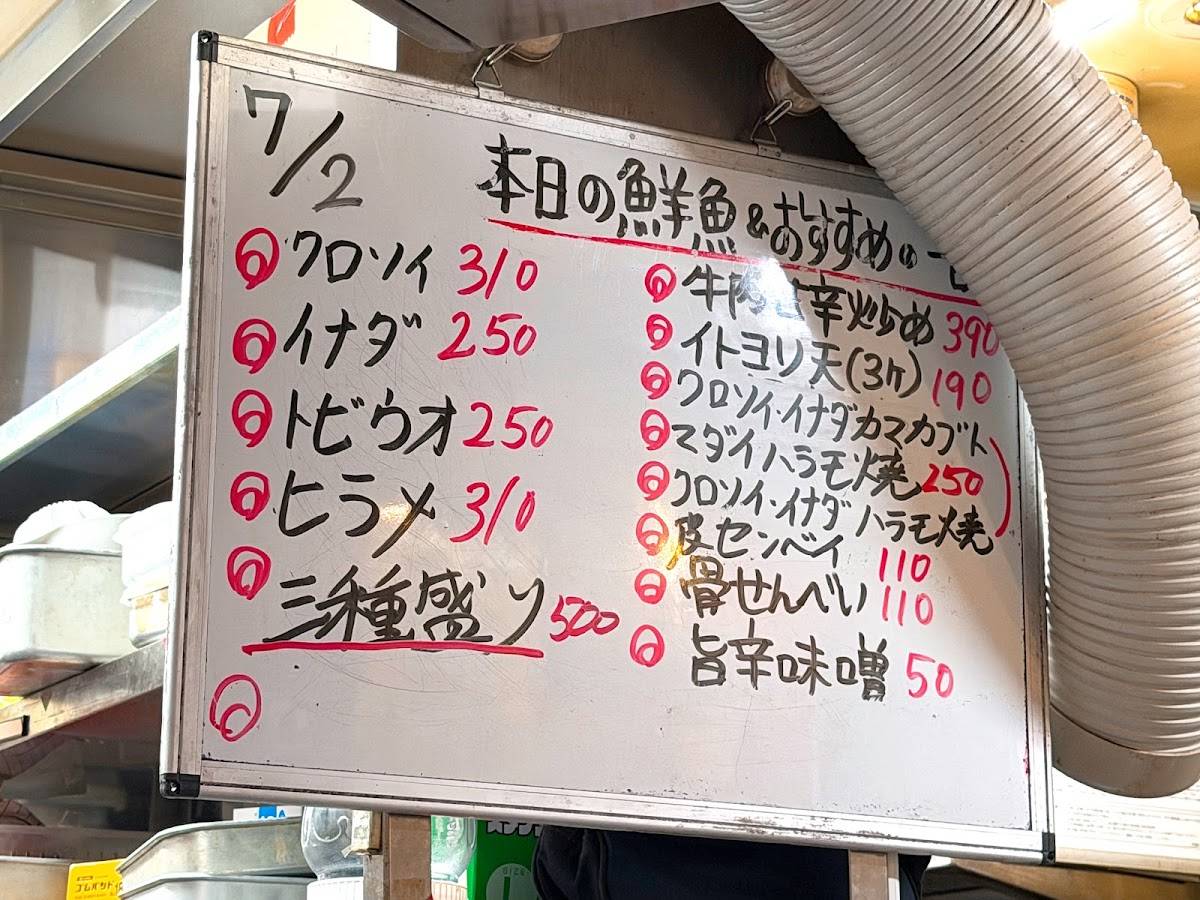 7/2
本日の鮮魚&おすすめの一
クロソイ 310
イナダ 250
トビウオ 250
ヒラメ 310
三種盛り 500
牛肉甘辛炒め 390
イトヨリ天(3ケ) 190
クロソイ・イナダカマカブト
マダイハラモ焼 250
クロソイ・イナダハラモ焼
皮センベイ 110
骨せんべい 110
旨辛味噌 50
ゴムバンド